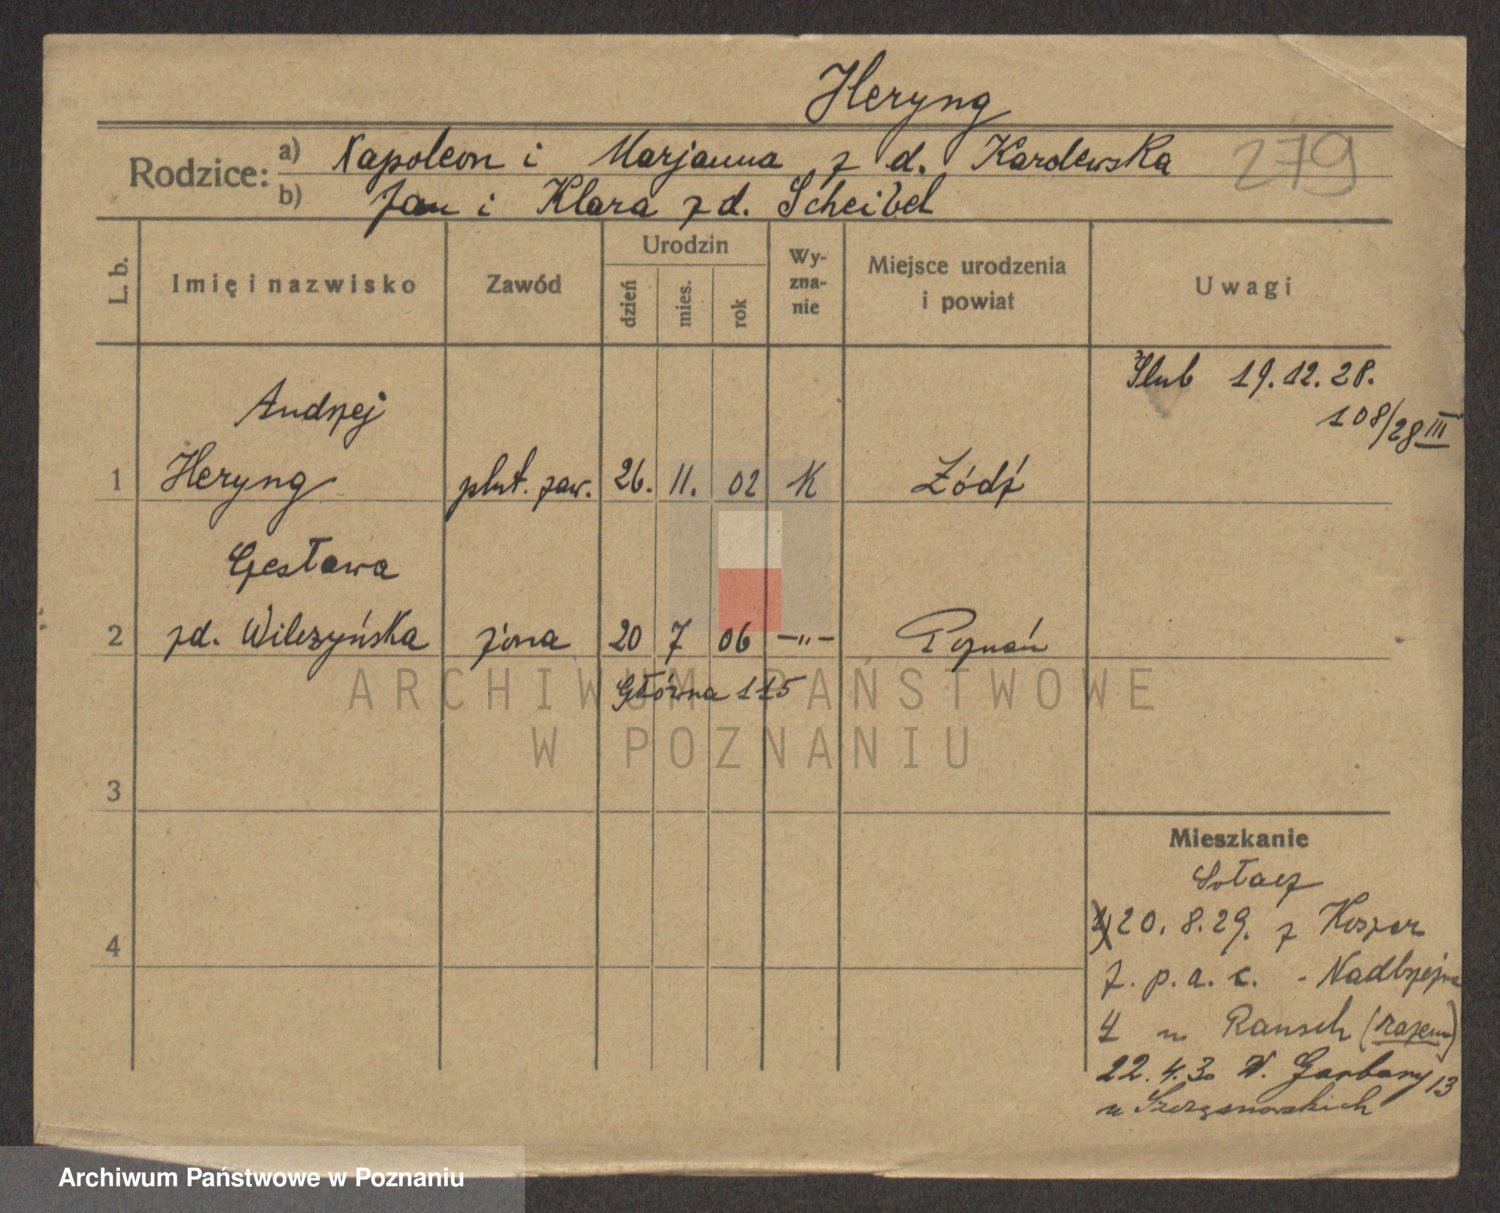 Heryng
Rodzice: a) Napoleon i Marjanna z d. Kardewska 279
b) Jan i Klara z d. Scheibel
L. b.
Imię i nazwisko
Zawód
Urodzin
dzień
mies.
rok
Wy-
zna-
nie
Miejsce urodzenia
i powiat
Uwagi
Ślub 19.12.28.
108/28 III
Andrzej
1 Heryng plut. zaw. 26. 11. 02 K Łódź
Czesława
2 zd. Wilczyńska żona 20 7 06 –„– Poznań
Główna 115
3
4
Mieszkanie
Sołacz
20. 8. 29. z Koszar
7. p. a. c. - Nadbrzeżna
4 u Rausch (razem)
22. 4. 30 W. Garbary 13
u
ARCHIWUM PAŃSTWOWE
W POZNANIU
Archiwum Państwowe w Poznaniu